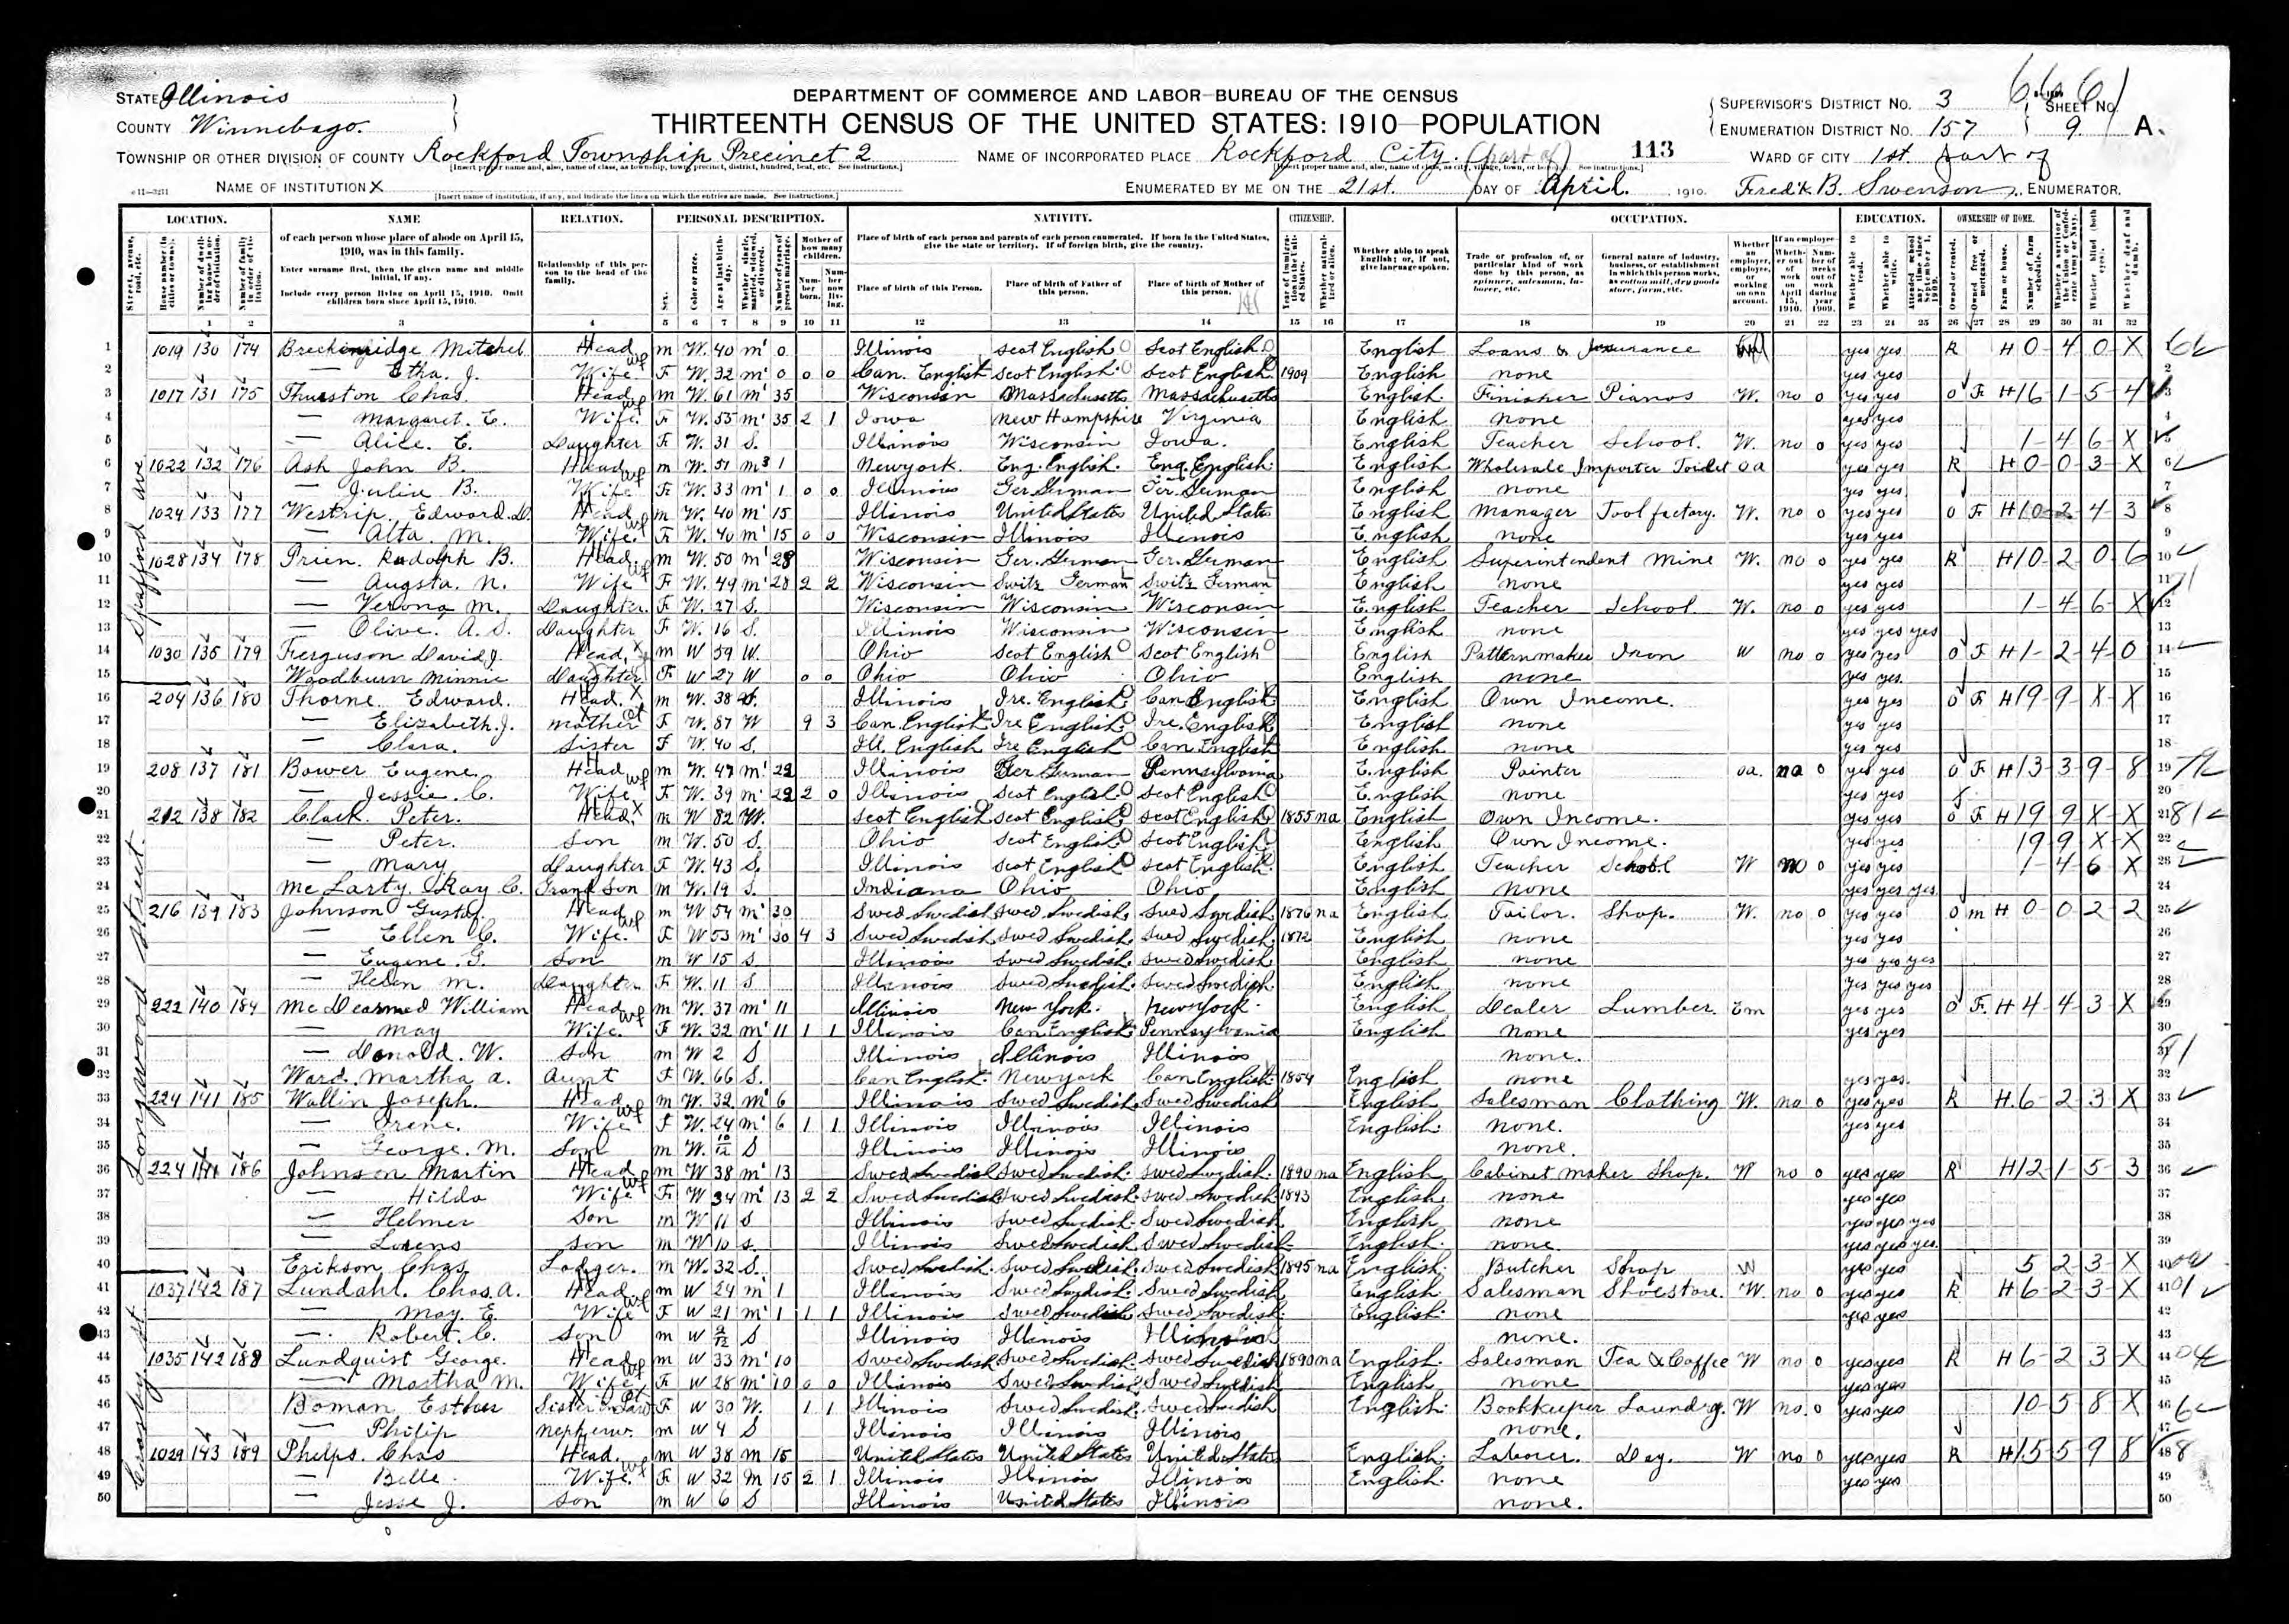 DEPARTMENT OF COMMERCE AND LABOR—BUREAU OF THE CENSUS
THIRTEENTH CENSUS OF THE UNITED STATES: 1910—POPULATION
STATE Illinois
COUNTY Winnebago.
TOWNSHIP OR OTHER DIVISION OF COUNTY Rockford Township Precinct 2
NAME OF INSTITUTION X
NAME OF INCORPORATED PLACE Rockford City. (part of)
113
ENUMERATED BY ME ON THE 21st. DAY OF April., 1910.
SUPERVISOR'S DISTRICT No. 3
ENUMERATION DISTRICT No. 157
SHEET No. 9 A.
WARD OF CITY 1st. part of
Fred'k B. Swenson, ENUMERATOR.
LOCATION. NAME RELATION. PERSONAL DESCRIPTION. NATIVITY. CITIZENSHIP. OCCUPATION. EDUCATION. OWNERSHIP OF HOME.
of each person whose place of abode on April 15, 1910, was in this family.
Enter surname first, then the given name and middle initial, if any.
Include every person living on April 15, 1910. Omit children born since April 15, 1910.
Relationship of this person to the head of the family.
Place of birth of each person and parents of each person enumerated. If born in the United States, give the state or territory. If of foreign birth, give the country.
Place of birth of this Person. Place of birth of Father of this person. Place of birth of Mother of this person.
Whether able to speak English; or, if not, give language spoken.
Trade or profession of, or particular kind of work done by this person, as spinner, salesman, laborer, etc.
General nature of industry, business, or establishment in which this person works, as cotton mill, dry goods store, farm, etc.
1 2 3 4 5 6 7 8 9 10 11 12 13 14 15 16 17 18 19 20 21 22 23 24 25 26 27 28 29 30 31 32
Spafford ave
1 1019 130 174 Breckenridge Mitchel Head m W. 40 m1 0 Illinois Scot English Scot English English Loans & Insurance yes yes R H 0-4-0-X
2 — Etha. J. Wife F W. 32 m1 0 0 0 Can. English Scot English Scot English 1909 English none yes yes
3 1017 131 175 Thurston Chas. Head m W. 61 m1 35 Wisconsin Massachusetts Massachusetts English Finisher Pianos W. no 0 yes yes O F H 16-1-5-4
4 — Margaret. E. Wife F W. 55 m1 35 2 1 Iowa New Hampshire Virginia English none yes yes
5 — Alice. E. Daughter F W. 31 S. Illinois Wisconsin Iowa. English Teacher School. W. no 0 yes yes 1-4-6-X
6 1022 132 176 Ash John B. Head m W. 51 m3 1 New york. Eng. English. Eng. English. English Wholesale Importer Toilet oa yes yes R H 0-0-3-X
7 — Julia B. Wife F W. 33 m1 1 0 0 Illinois Ger German Ger. German English none yes yes
8 1024 133 177 Westrip. Edward. Head m W. 40 m1 15 Illinois United States United States English Manager Tool factory. W. no 0 yes yes O F H 10-2-4-3
9 — Alta. M. Wife F W. 40 m1 15 0 0 Wisconsin Illinois Illinois English none yes yes
10 1028 134 178 Prien. Rudolph B. Head m W. 50 m1 28 Wisconsin Ger. German Ger. German English Superintendent Mine W. no 0 yes yes R H 10-2-0-6
11 — Augsta. N. Wife F W. 49 m1 28 2 2 Wisconsin Switz German Switz German English none yes yes
12 — Verona M. Daughter. F W. 27 S. Wisconsin Wisconsin Wisconsin English Teacher School W. no 0 yes yes 1-4-6-X
13 — Olive. A. S. Daughter F W. 16 S. Illinois Wisconsin Wisconsin English none yes yes yes
14 1030 135 179 Ferguson David J. Head m W 59 W. Ohio Scot English Scot English English Patternmaker Iron W no 0 yes yes O F H 1-2-4-0
15 Woodburn Minnie Daughter F W 27 W 0 0 Ohio Ohio Ohio English none yes yes
Longwood Street.
16 204 136 180 Thorne Edward. Head. m W. 38 S. Illinois Ire. English Can English English Own Income. yes yes O F H 19-9-X-X
17 — Elizabeth. J. mother F W. 87 W 9 3 Can. English Ire English Ire. English English none yes yes
18 — Clara. Sister F W. 40 S. Ill. English Ire English Can English English none yes yes
19 208 137 181 Bower Eugene Head m W. 47 m1 22 Illinois Ger German Pennsylvania English Painter oa. no 0 yes yes O F H 13-3-9-8
20 — Jessie. C. Wife F W. 39 m1 22 2 0 Illinois Scot English Scot English English none yes yes
21 212 138 182 Clark. Peter. Head. m W 82 W. Scot English Scot English Scot English 1855 na English Own Income. yes yes O F H 19-9-X-X
22 — Peter. Son m W. 50 S. Ohio Scot English Scot English English Own Income. yes yes 19-9-X-X
23 — Mary Daughter F W. 43 S. Illinois Scot English Scot English English Teacher School W no 0 yes yes 1-4-6-X
24 McLarty. Ray C. Grand Son m W. 19 S. Indiana Ohio Ohio English none yes yes yes
25 216 139 183 Johnson Gustaf. Head m W 54 m1 30 Swed Swedish Swed Swedish Swed Swedish 1876 na English Tailor. Shop. W. no 0 yes yes O m H 0-0-2-2
26 — Ellen C. Wife. F W 53 m1 30 4 3 Swed Swedish Swed Swedish Swed Swedish 1872 English none yes yes
27 — Eugene. Son m W 15 S Illinois Swed Swedish Swed Swedish English none yes yes yes
28 — Helen M. Daughter F W. 11 S Illinois Swed Swedish Swed Swedish English none yes yes yes
29 222 140 184 McDearmed William Head m W. 37 m1 11 Illinois New York. New York. English Dealer Lumber. Em yes yes O F. H 4-4-3-X
30 — May Wife. F W. 32 m1 11 1 1 Illinois Can English Pennsylvania English none yes yes
31 — Donald. W. Son m W 2 S Illinois Illinois Illinois none.
32 Ward. Martha A. Aunt F W. 66 S. Can English New York Can English 1854 English none yes yes
33 224 141 185 Wallin Joseph. Head m W. 32 m1 6 Illinois Swed Swedish Swed Swedish English Salesman Clothing W. no 0 yes yes R H. 6-2-3-X
34 — Irene. Wife F W. 24 m1 6 1 1 Illinois Illinois Illinois English. none. yes yes
35 — George. M. Son m W. 10/12 S Illinois Illinois Illinois none.
36 224 141 186 Johnson Martin Head m W 38 m1 13 Swed Swedish Swed Swedish Swed Swedish 1890 na English Cabinet maker Shop. W no 0 yes yes R H 12-1-5-3
37 — Hilda Wife F W 34 m1 13 2 2 Swed Swedish Swed Swedish Swed Swedish 1893 English none yes yes
38 — Helmer Son m W 11 S Illinois Swed Swedish Swed Swedish English none yes yes yes
39 — Lorens Son m W 10 S. Illinois Swed Swedish Swed Swedish English. none. yes yes yes.
40 Erikson Chas Lodger. m W. 32 S. Swed Swedish Swed Swedish Swed Swedish 1895 na English. Butcher Shop W yes yes 5-2-3-X
Crosby St
41 1037 142 187 Lundahl. Chas. A. Head m W 24 m1 1 Illinois Swed Swedish Swed Swedish English Salesman Shoestore. W no 0 yes yes R H 6-2-3-X
42 — May E Wife F W 21 m1 1 1 1 Illinois Swed Swedish Swed Swedish English. none yes yes
43 — Robert. C. Son m W S Illinois Illinois Illinois none.
44 1035 142 188 Lundquist George. Head m W 33 m1 10 Swed Swedish Swed Swedish Swed Swedish 1890 na English. Salesman Tea & Coffee W no 0 yes yes R H 6-2-3-X
45 — Martha M. Wife F W 28 m1 10 0 0 Illinois Swed Swedish Swed Swedish English none yes yes
46 Boman Esther Sister in Law F W 30 W. 1 1 Illinois Swed Swedish Swed Swedish English. Bookkeeper Laundry. W no 0 yes yes 10-5-8-X
47 — Philip nephew. m W 4 S Illinois Illinois Illinois none.
48 1029 143 189 Phelps. Chas Head m W 38 m 15 United States United States United States English. Laborer. Day. W no 0 yes yes R H 15-5-9-8
49 — Belle. Wife. F W 32 m 15 2 1 Illinois Illinois Illinois English. none yes yes
50 — Jesse J. Son m W 6 S Illinois United States Illinois none.